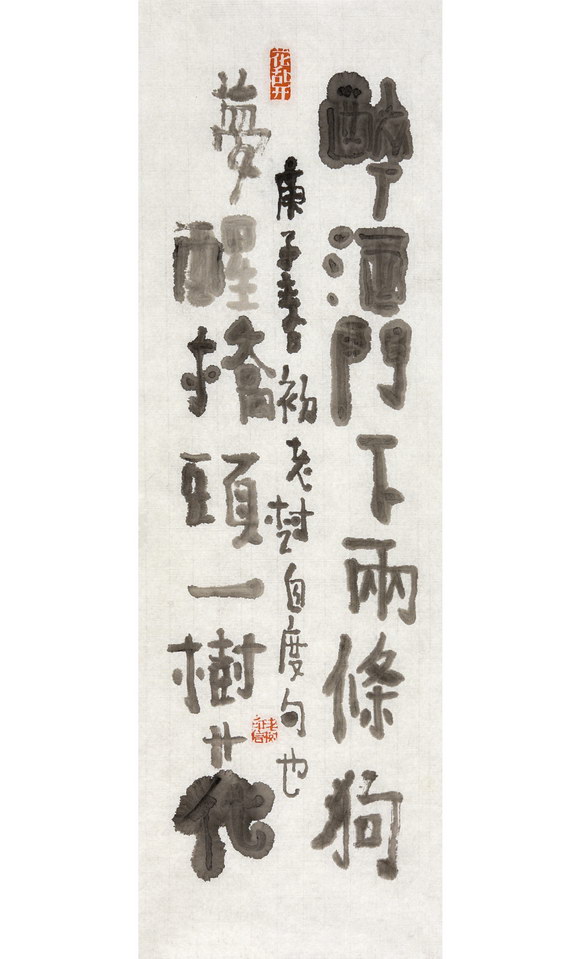 醉酒門下兩條狗
夢醒撟頭一樹花
庚子春初老村自度句也
花乱开